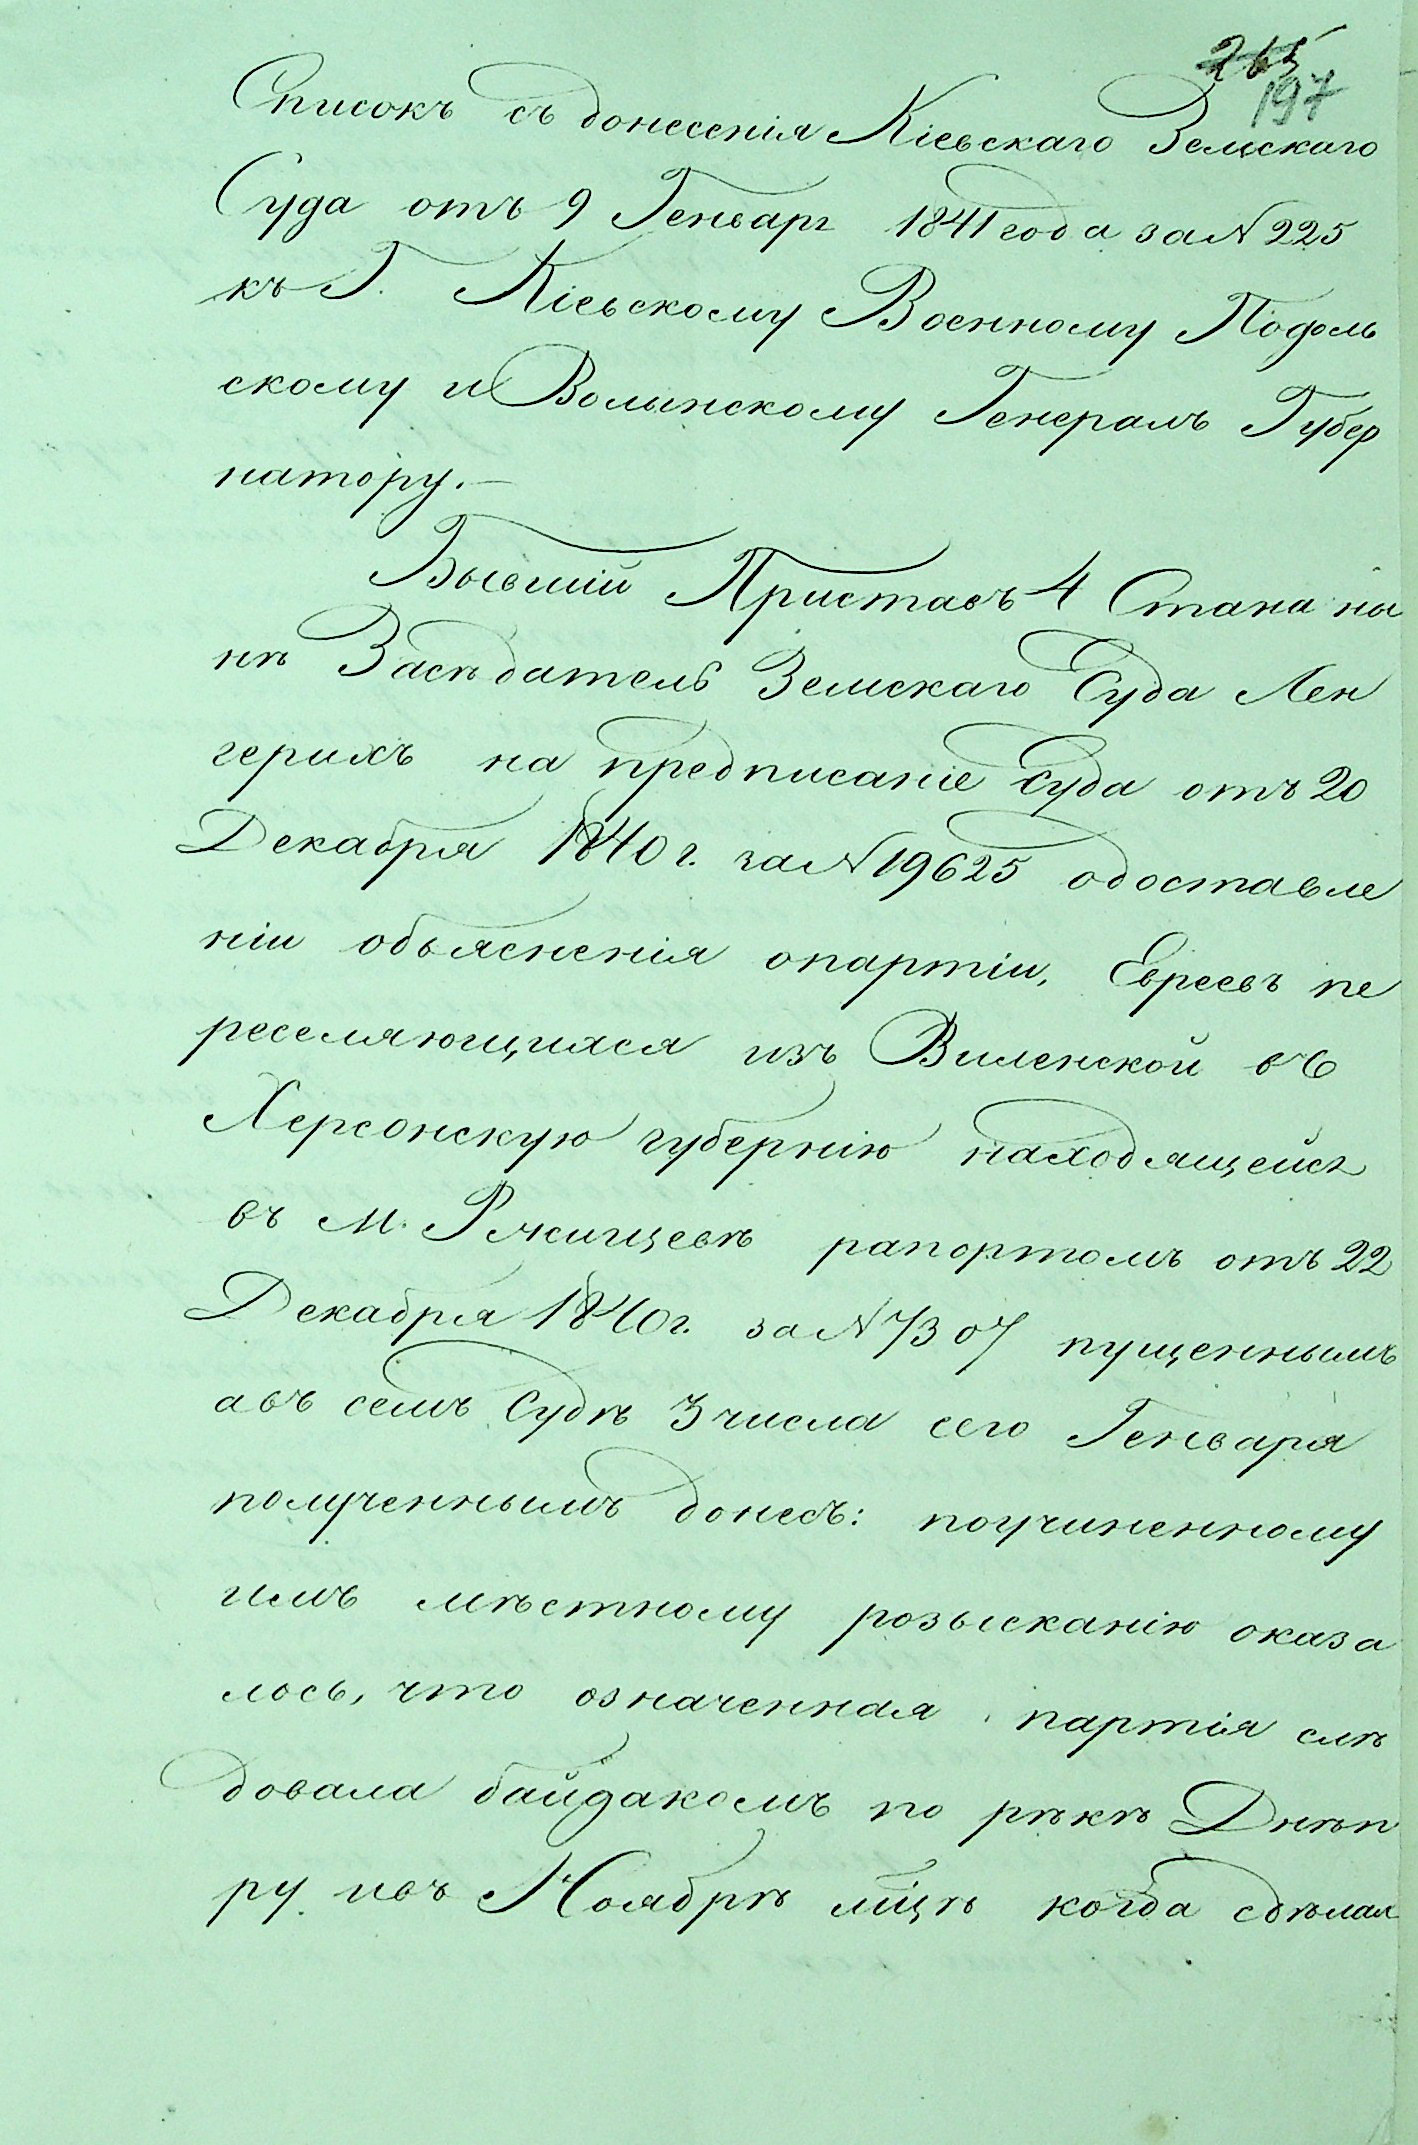 265
197
Списокъ съ донесенія Кіевскаго Земскаго
Суда отъ 9 Генваря 1841 года за N 225
къ Г. Кіевскому Военному Подоль
скому и Волынскому Генералъ Губер
натору.—
Бывшій Приставъ 4 Стана ны
нѣ Засѣдатель Земскаго Суда Лен
герихъ на предписаніе Суда отъ 20
Декабря 1840 г. за N 19625 одоставле
ніи объясненія опартіи, Евреевъ пе
реселяющихся изъ Виленской въ
Херсонскую губернію находящейся
въ м. Ржищевѣ рапортомъ отъ 22
Декабря 1840 г. за N 7307 пущеннымъ
авъ семъ Судѣ 3 числа сего Генваря
полученнымъ донесъ: поучиненному
имъ мѣстному розысканію оказа
лось, что означенная партія слѣ
довала байдакомъ по рѣкѣ Днѣп
ру ивъ Ноябрѣ мцѣ когда сдѣлал